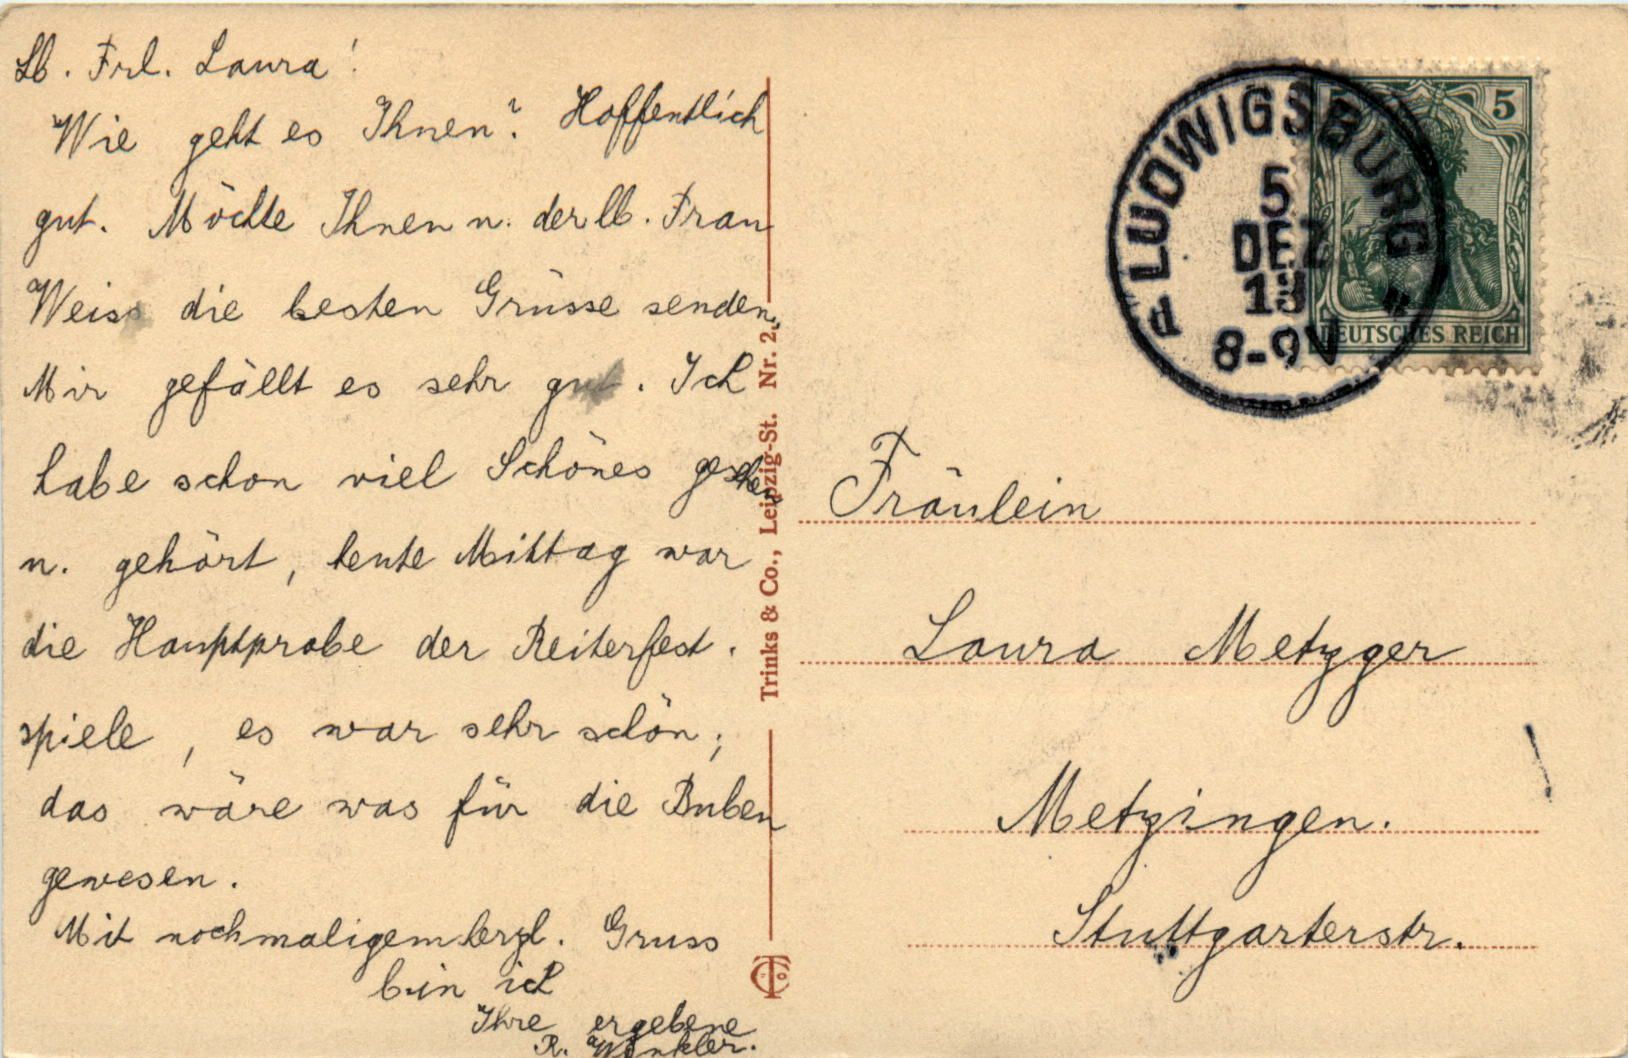 Lb. Frl. Laura!
Wie geht es Ihnen? Hoffentlich
gut. Möchte Ihnen u. der lb. Frau
Weiss die besten Grüsse senden,
Mir gefällt es sehr gut. Ich
habe schon viel Schönes gesehen
u. gehört, heute Mittag war
die Hauptprobe der Reiterfest.
spiele, es war sehr schön;
das wäre was für die Buben
gewesen.
Mit nochmaligem herzl. Gruss
bin ich
Ihre ergebene
R. Winkler.
Trinks & Co., Leipzig-St. Nr. 2.
TCo
LUDWIGSBURG
5
DEZ
13
8-9V
5
5
DEUTSCHES REICH
Fräulein
Laura Metzger
Metzingen.
Stuttgarterstr.